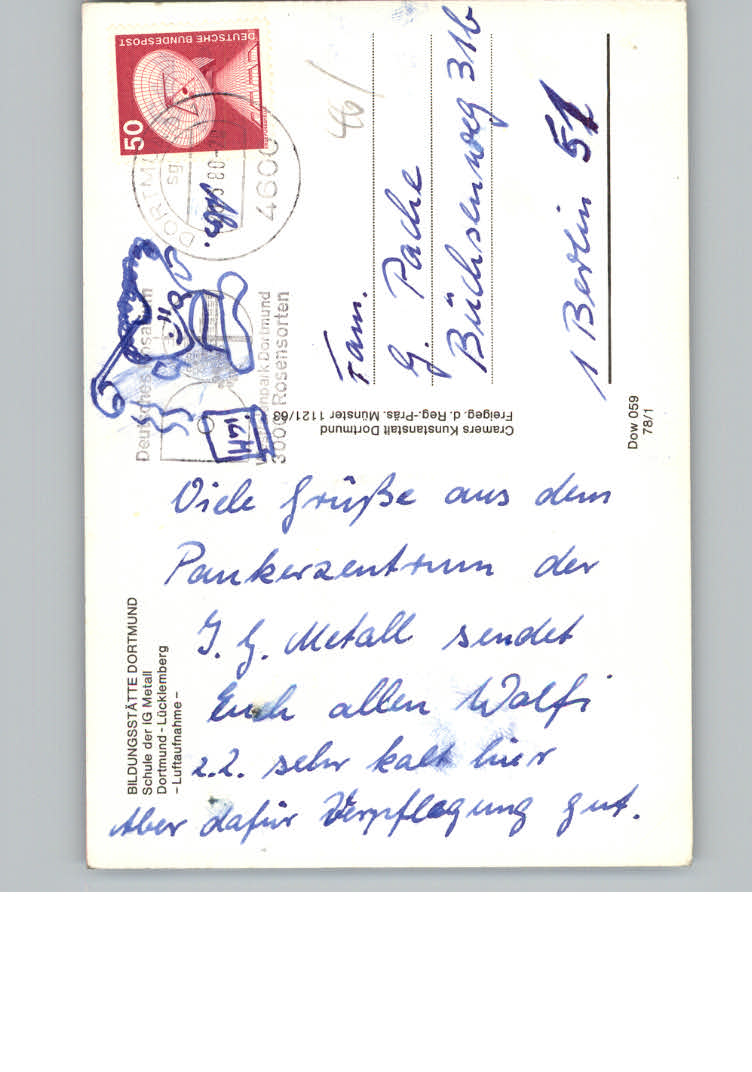 BILDUNGSSTÄTTE DORTMUND
Schule der IG Metall
Dortmund - Lücklemberg
– Luftaufnahme –
Viele Grüße aus dem
Paukerzentrum der
I. G. Metall sendet
Euch allen Walfi
z.Z. sehr kalt hier
Aber dafür Verpflegung gut.
DEUTSCHE BUNDESPOST
50
4600
Deutsches
Dortmund
3000 Rosensorten
IGM
Fam.
G. Pache
Büchsenweg 31b
1 Berlin 51
46/
Cramers Kunstanstalt Dortmund
Freigeg. d. Reg.-Präs. Münster 1121/63
Dow 059
78/1